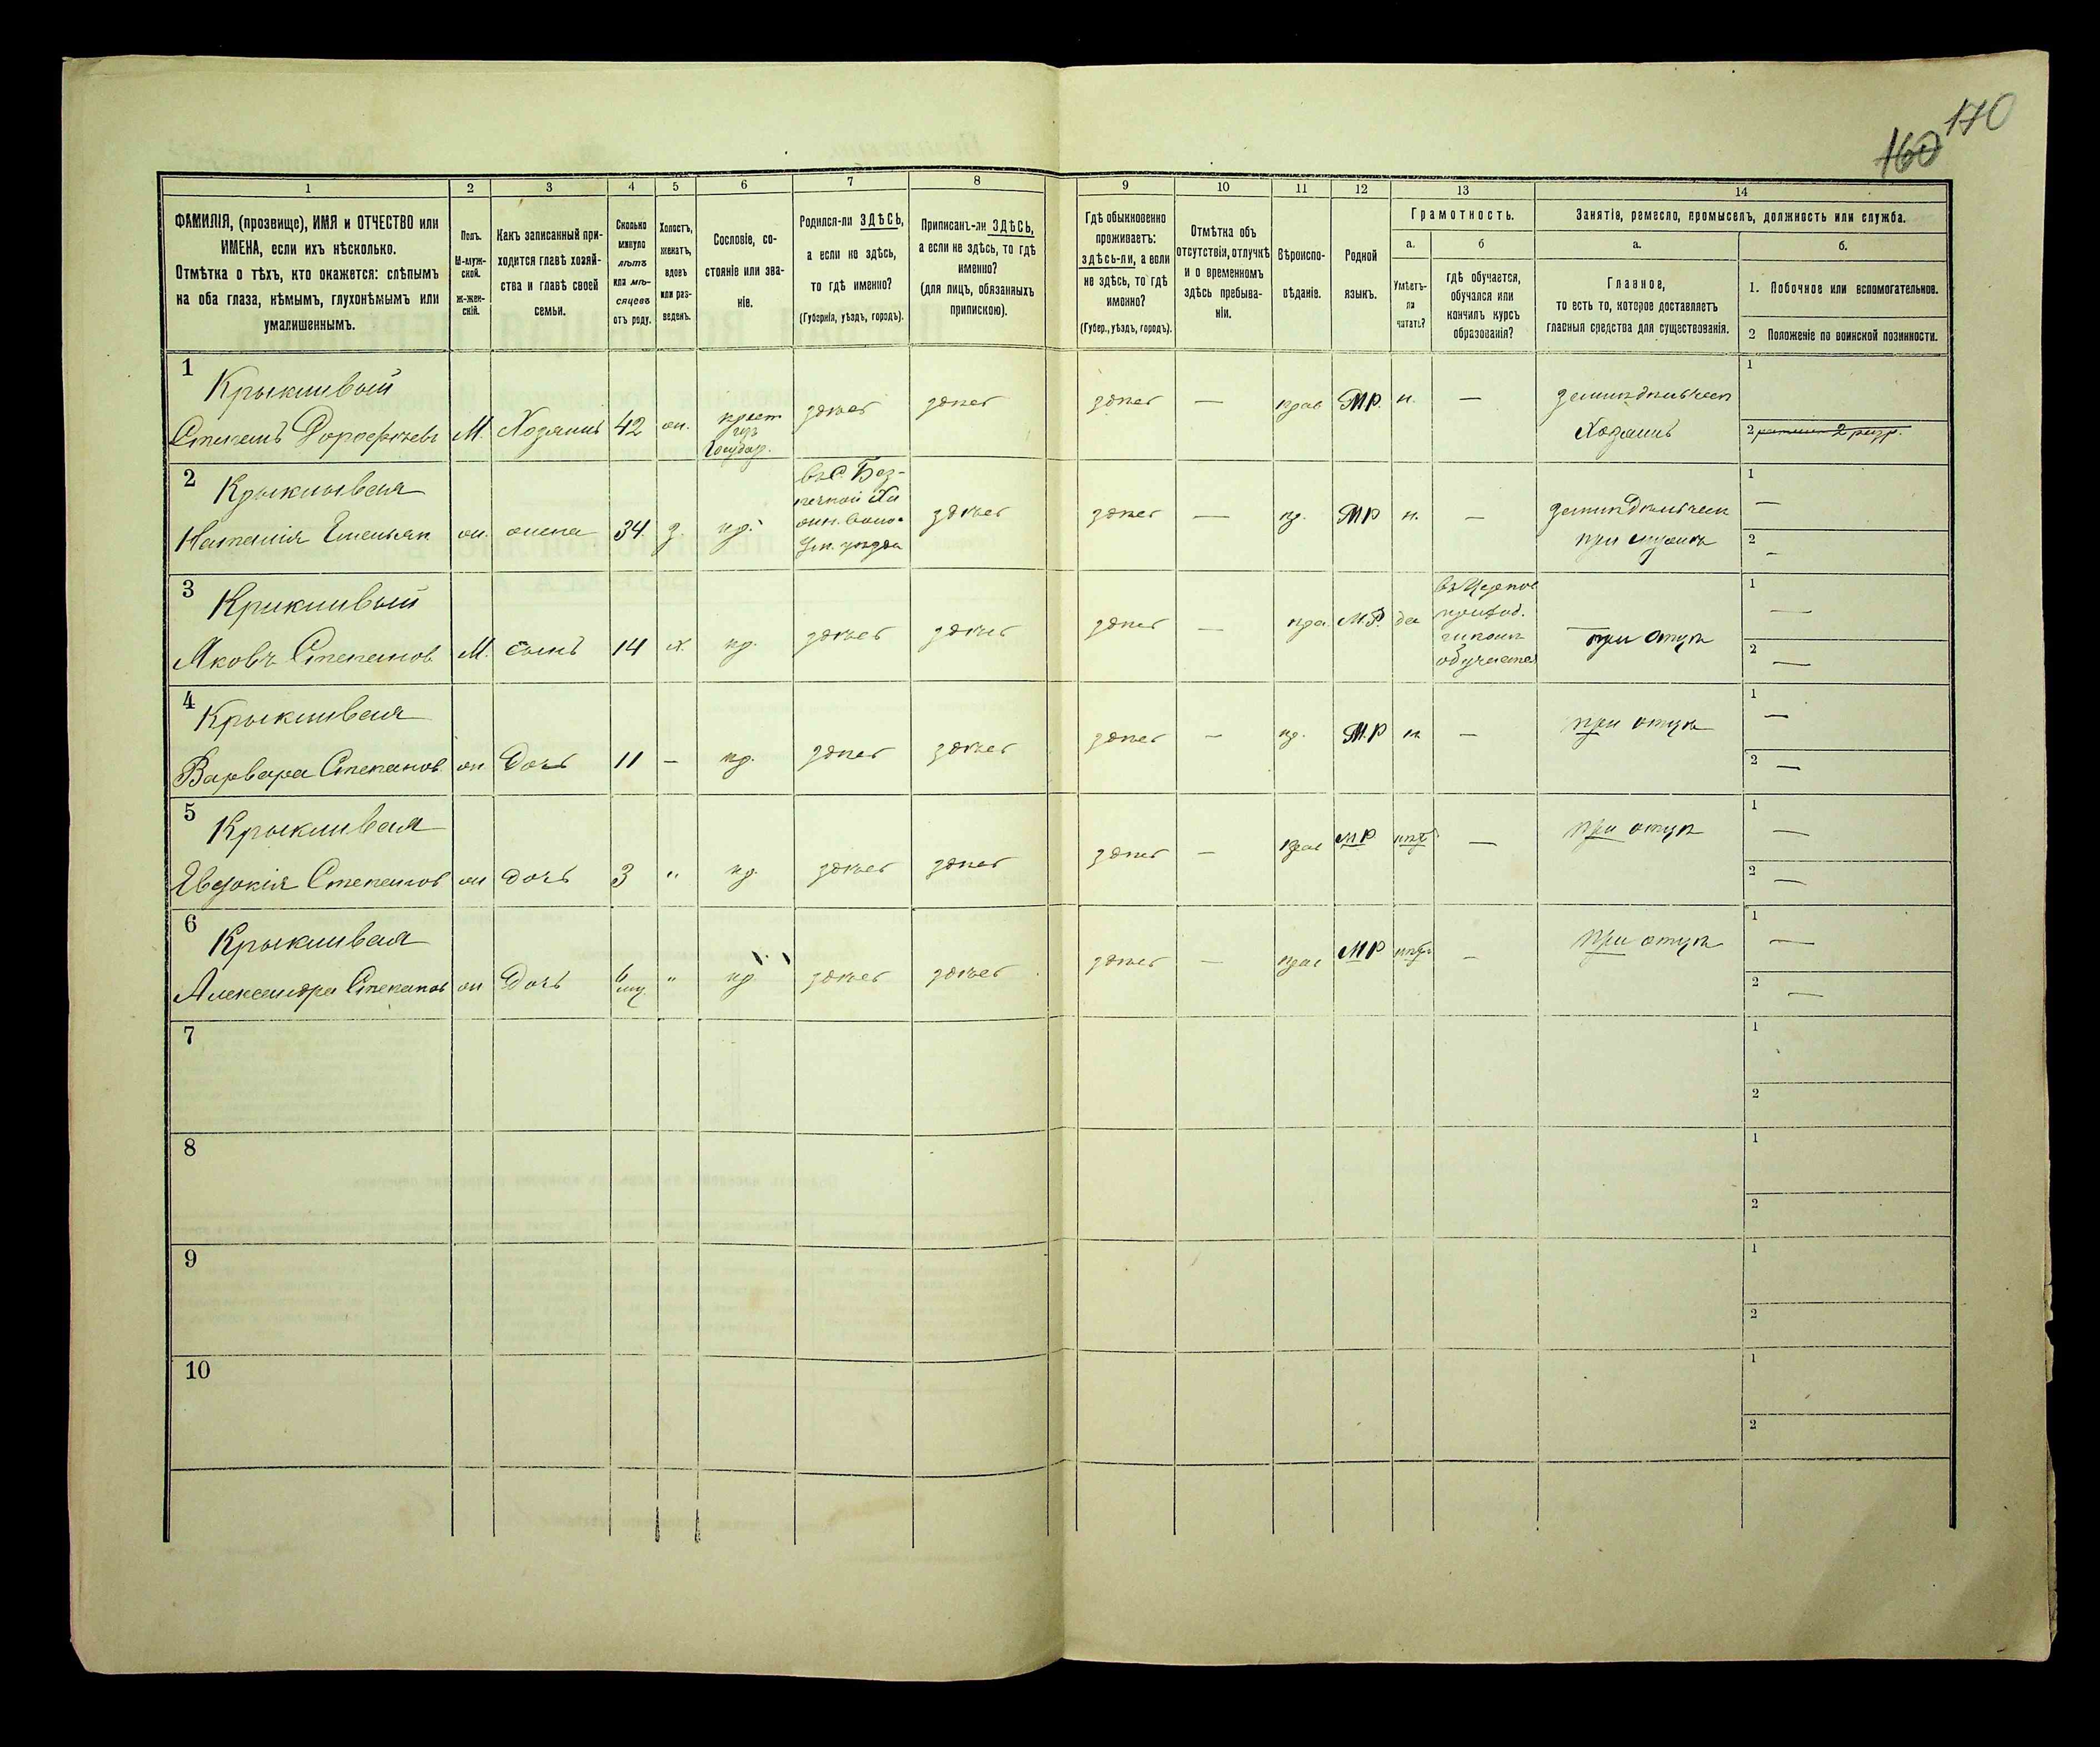 170
160
1
2
3
4
5
6
7
8
9
10
11
12
13
14
ФАМИЛІЯ, (прозвище), ИМЯ и ОТЧЕСТВО или
ИМЕНА, если ихъ нѣсколько.
Отмѣтка о тѣхъ, кто окажется: слѣпымъ
на оба глаза, нѣмымъ, глухонѣмымъ или
умалишеннымъ.
Полъ.
М-муж-
ской.
ж-жен-
скій.
Какъ записанный при-
ходится главѣ хозяй-
ства и главѣ своей
семьи.
Сколько
минуло
лѣтъ
или мѣ-
сяцевъ
отъ роду.
Холостъ,
женатъ,
вдовъ
или раз-
веденъ.
Сословіе, со-
стояніе или зва-
ніе.
Родился-ли ЗДѢСЬ,
а если не здѣсь,
то гдѣ именно?
(Губернія, уѣздъ, городъ).
Приписанъ-ли ЗДѢСЬ,
а если не здѣсь, то гдѣ
именно?
(для лицъ, обязанныхъ
припискою).
Гдѣ обыкновенно
проживаетъ:
здѣсь-ли, а если
не здѣсь, то гдѣ
именно?
(Губер., уѣздъ, городъ).
Отмѣтка объ
отсутствіи, отлучкѣ
и о временномъ
здѣсь пребыва-
ніи.
Вѣроиспо-
вѣданіе.
Родной
языкъ.
Грамотность.
а.
Умѣетъ-
ли
читать?
б
гдѣ обучается,
обучался или
кончилъ курсъ
образованія?
Занятіе, ремесло, промыселъ, должность или служба.
а.
Главное,
то есть то, которое доставляетъ
главныя средства для существованія.
б.
1. Побочное или вспомогательное.
2 Положеніе по воинской повинности.
1
Крыкливый
Степанъ Дорофѣевъ М. Хозяинъ 42 ж. крест
изъ
Государ.
здѣсь здѣсь здѣсь — прав М.Р. н. — земледѣльчест
Хозяинъ
1
2 2 разр.
2
Крыкливая
Наталія Емельян ж. жена 34 з. кр.
въ С. Без-
печной
уѣзда
здѣсь здѣсь — пр. МР н. — земледѣльчест
при мужѣ
1 —
2 —
3
Крикливый
Яковъ Степанов М. сынъ 14 х. кр. здѣсь здѣсь здѣсь — пра М.Р. да
въ Церков
приход.
школѣ
обучается
при отцѣ
1 —
2 —
4
Крыкливая
Варвара Степанов ж Дочь 11 — кр. здѣсь здѣсь здѣсь — пр. М.Р н — при отцѣ
1 —
2 —
5
Крыкливая
Евдокія Степанов ж дочь 3 " кр здѣсь здѣсь здѣсь — прав МР нѣт — при отцѣ
1 —
2 —
6
Крыкливая
Александра Степанов ж Дочь 6
мц.
" кр здѣсь здѣсь здѣсь — прав МР нѣт — при отцѣ
1 —
2 —
7
1
2
8
1
2
9
1
2
10
1
2